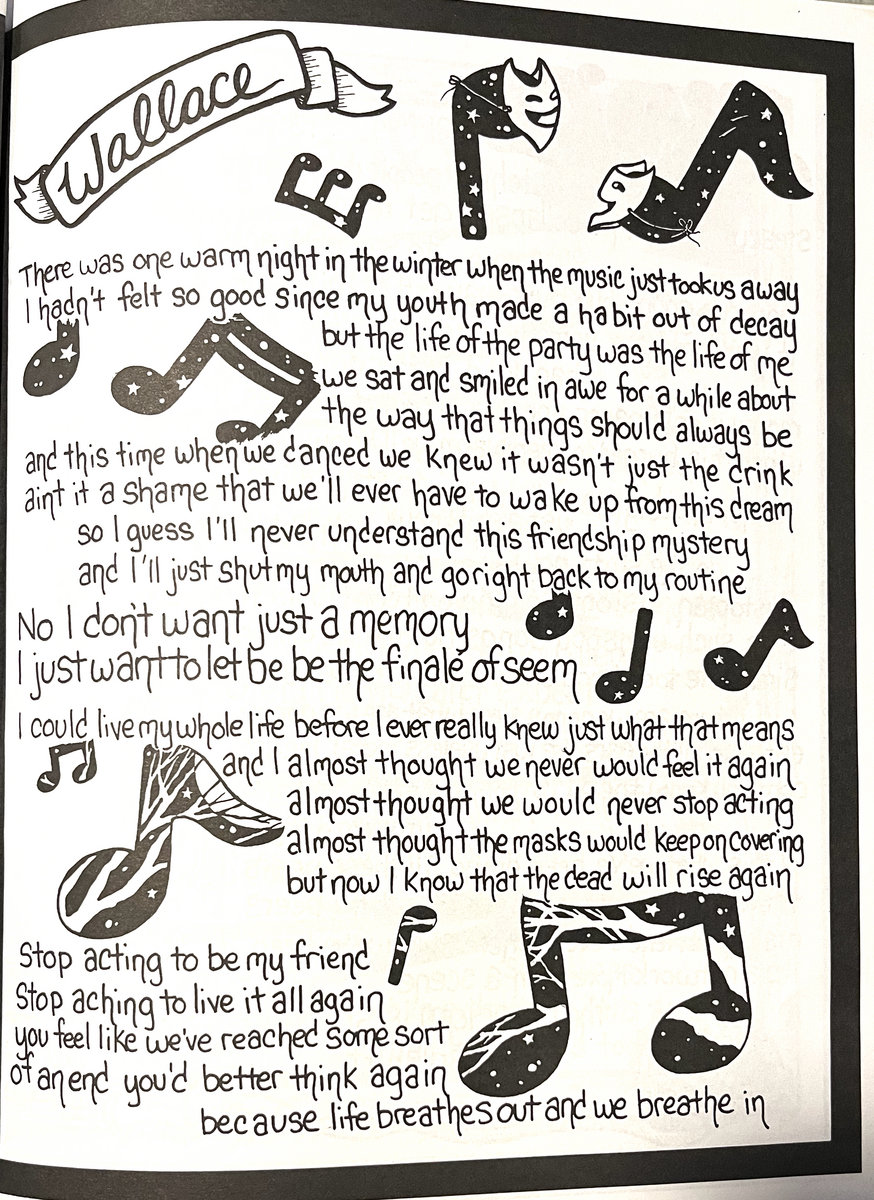 Wallace
There was one warm night in the winter when the music just took us away
I hadn't felt so good since my youth made a habit out of decay
but the life of the party was the life of me
we sat and smiled in awe for a while about
the way that things should always be
and this time when we danced we knew it wasn't just the drink
aint it a shame that we'll ever have to wake up from this dream
so I guess I'll never understand this friendship mystery
and I'll just shut my mouth and go right back to my routine
No I don't want just a memory
I just want to let be be the finale of seem
I could live my whole life before I ever really knew just what that means
and I almost thought we never would feel it again
almost thought we would never stop acting
almost thought the masks would keep on covering
but now I know that the dead will rise again
Stop acting to be my friend
Stop aching to live it all again
you feel like we've reached some sort
of an end you'd better think again
because life breathes out and we breathe in